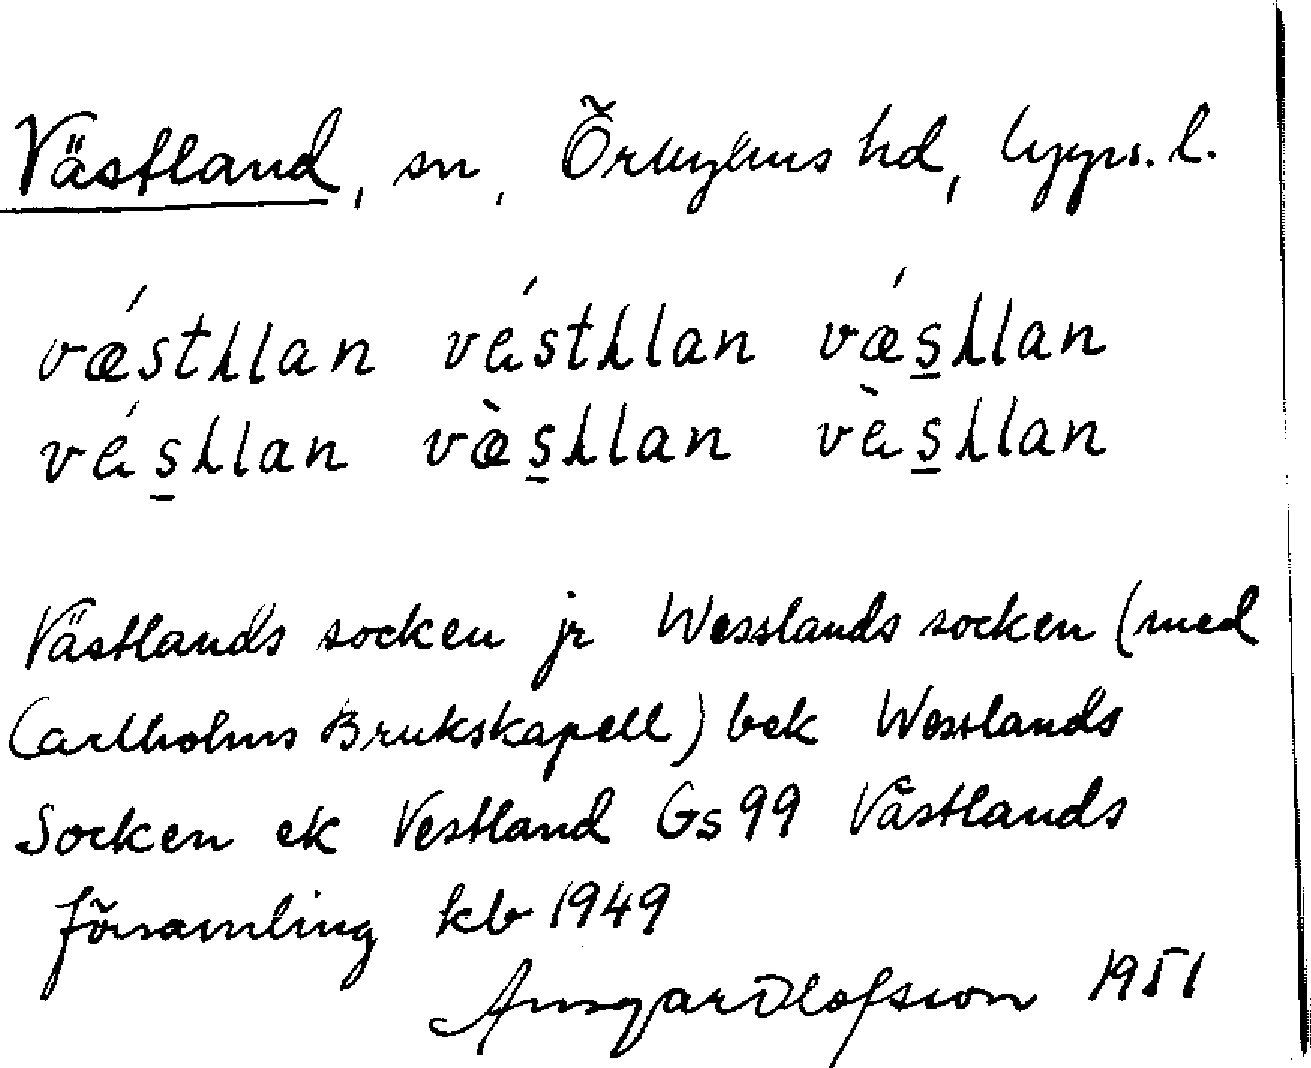 Västland, sn, Örbyhus hd, Upps. l.
vǽstʌllan vést​ʌllan vǽs̱ʌllan
vés̱ʌllan væ̀s̱ʌllan vès̱ʌllan
Västlands socken jr Wesslands socken (med
Carlholms Brukskapell) bek Wesslands
Socken ek Vestland Gs 99 Västlands
församling kb 1949
Ansgar Olofsson 1951